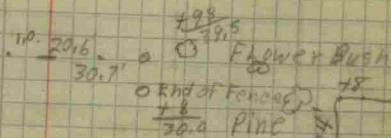 +98
39.5
T.P. 20.6
30.7'
Flower Bush
End of Fence
+8
30.0
Pine
+8